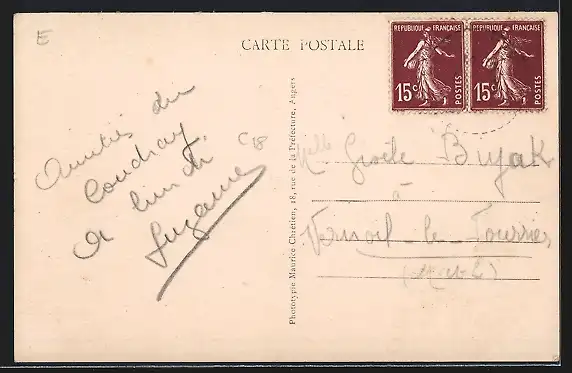 E
CARTE POSTALE
REPUBLIQUE FRANÇAISE
15c
POSTES
REPUBLIQUE FRANÇAISE
15c
POSTES
Amitiés du
Coudray
A lundi
Suzanne
C18
Phototypie Maurice Chrétien, 18, rue de la Préfecture, Angers
Melle Gisèle Bujak
à
Vernoil-le-Fourrier
(M et L)